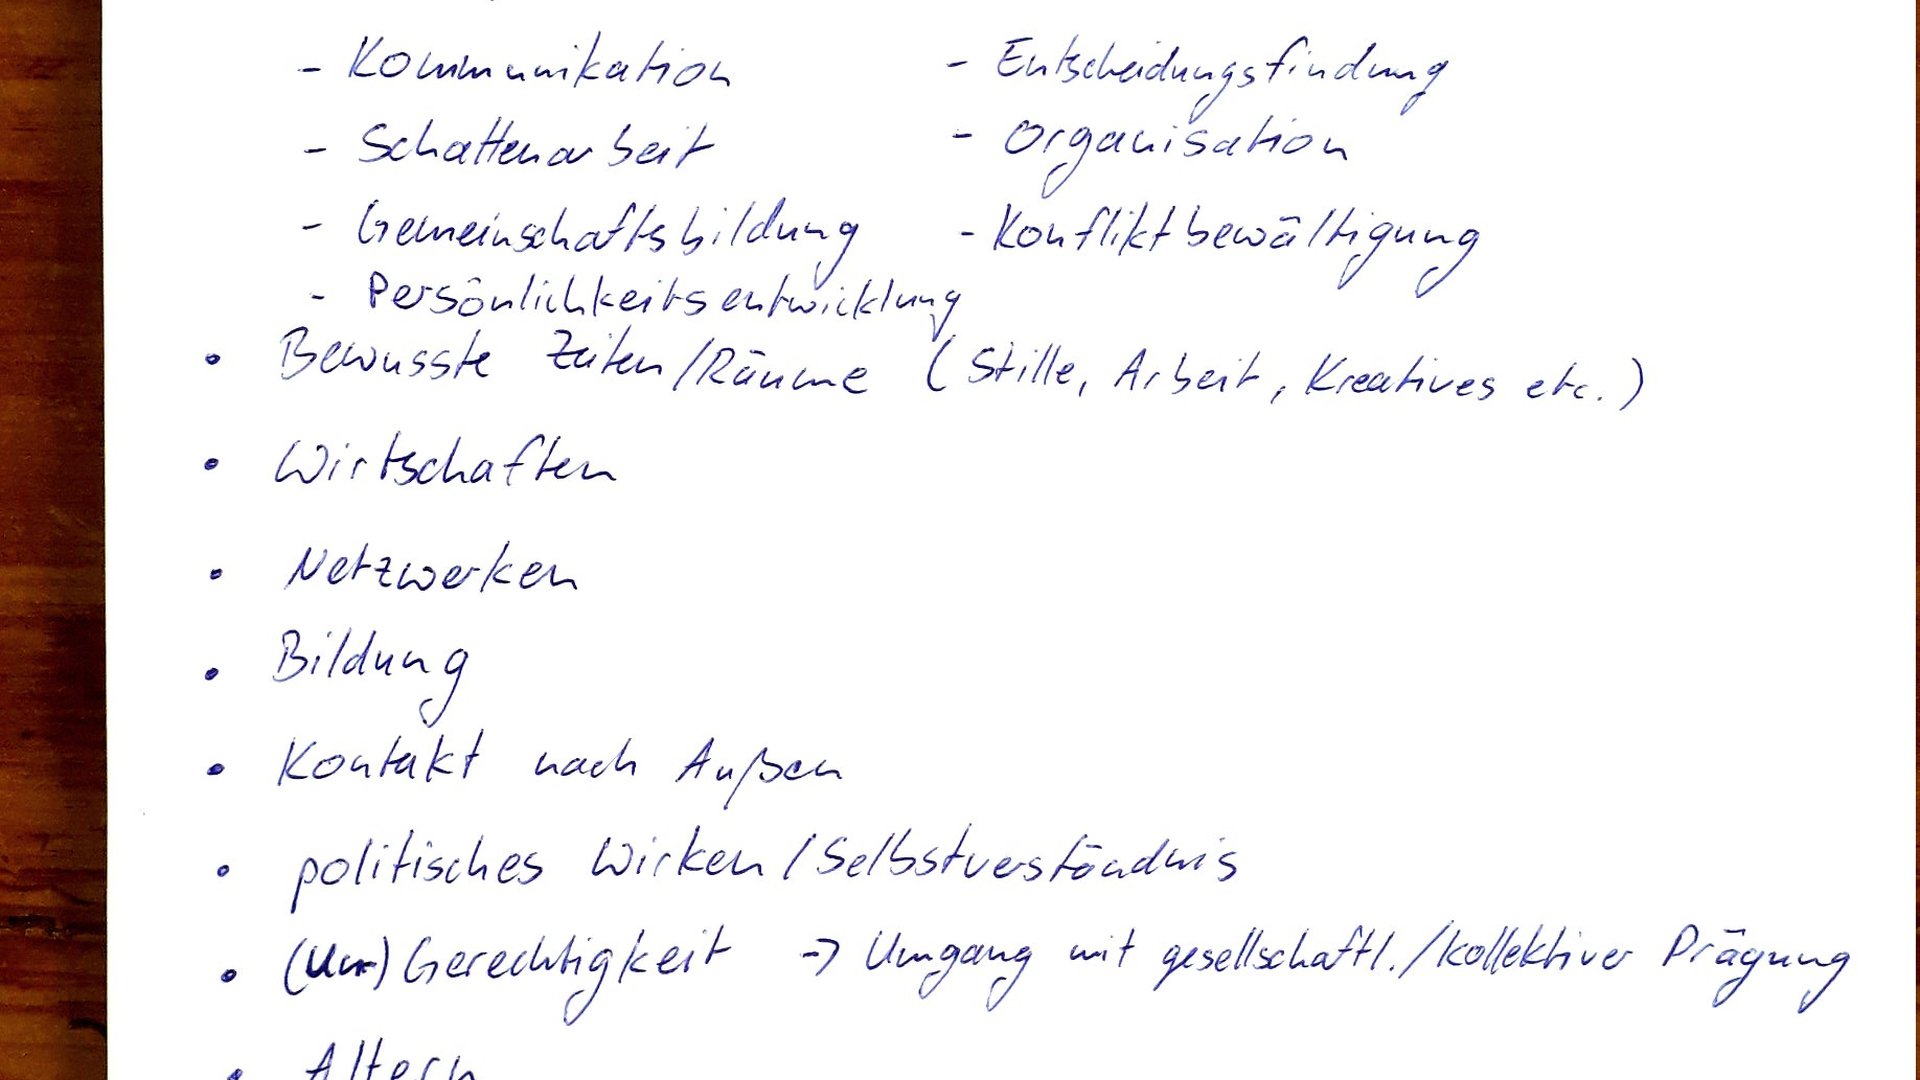 - Kommunikation - Entscheidungsfindung
- Schattenarbeit - Organisation
- Gemeinschaftsbildung - Konfliktbewältigung
- Persönlichkeitsentwicklung
• Bewusste Zeiten/Räume (Stille, Arbeit, Kreatives etc.)
• Wirtschaften
• Netzwerken
• Bildung
• Kontakt nach Außen
• politisches Wirken/Selbstverständnis
• (Un-)Gerechtigkeit -> Umgang mit gesellschaftl./kollektiver Prägung
• Altern